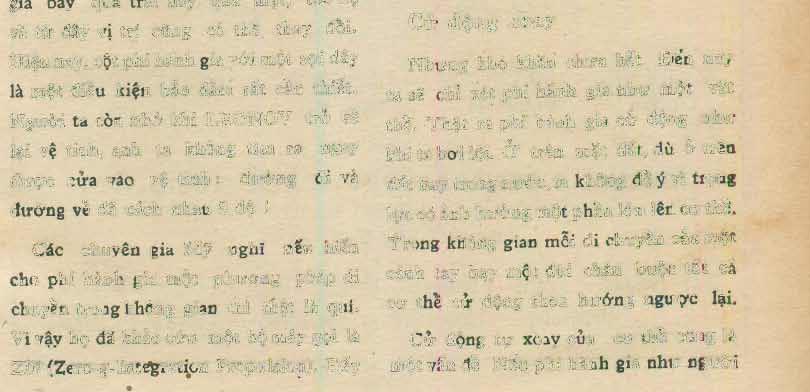 và từ đây vị trí cũng có thể thay đổi.
Hiện nay, cột phi hành gia với một sợi dây
là một điều kiện bảo đảm rất cần thiết.
Người ta còn nhớ khi LEONOV trở về
lại vệ tinh, anh ta không tìm ra ngay
được cửa vào vệ tinh: đường đi và
đường về đã cách nhau
Các chuyên gia Mỹ nghĩ nếu hiến
cho phi hành gia một phương pháp di
chuyển trong không gian thì thật là quí.
Vì vậy họ đã khảo cứu một bộ máy gọi là
(Zero-g-Integration Propulsion). Đây
Cử động xoay
Nhưng khó khăn chưa hết. Đến nay
ta sẽ chỉ xét phi hành gia như một vật
thể. Thật ra phi hành gia cử động như
khi ta bơi lội. Ở trên mặt đất, dù ở trên
đất hay trong nước, ta không để ý vì trọng
lực có ảnh hưởng một phần lớn lên cơ thể.
Trong không gian mỗi di chuyển của một
cánh tay hay một đôi chân buộc tất cả
cơ thể cử động theo hướng ngược lại.
Cử động tự xoay của cơ thể cũng là
một vấn đề. Nếu phi hành gia như người